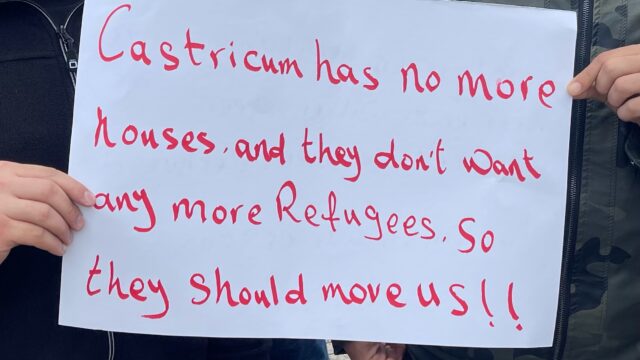 Castricum has no more
houses. and they don't want
any more Refugees. So
they should move us!!